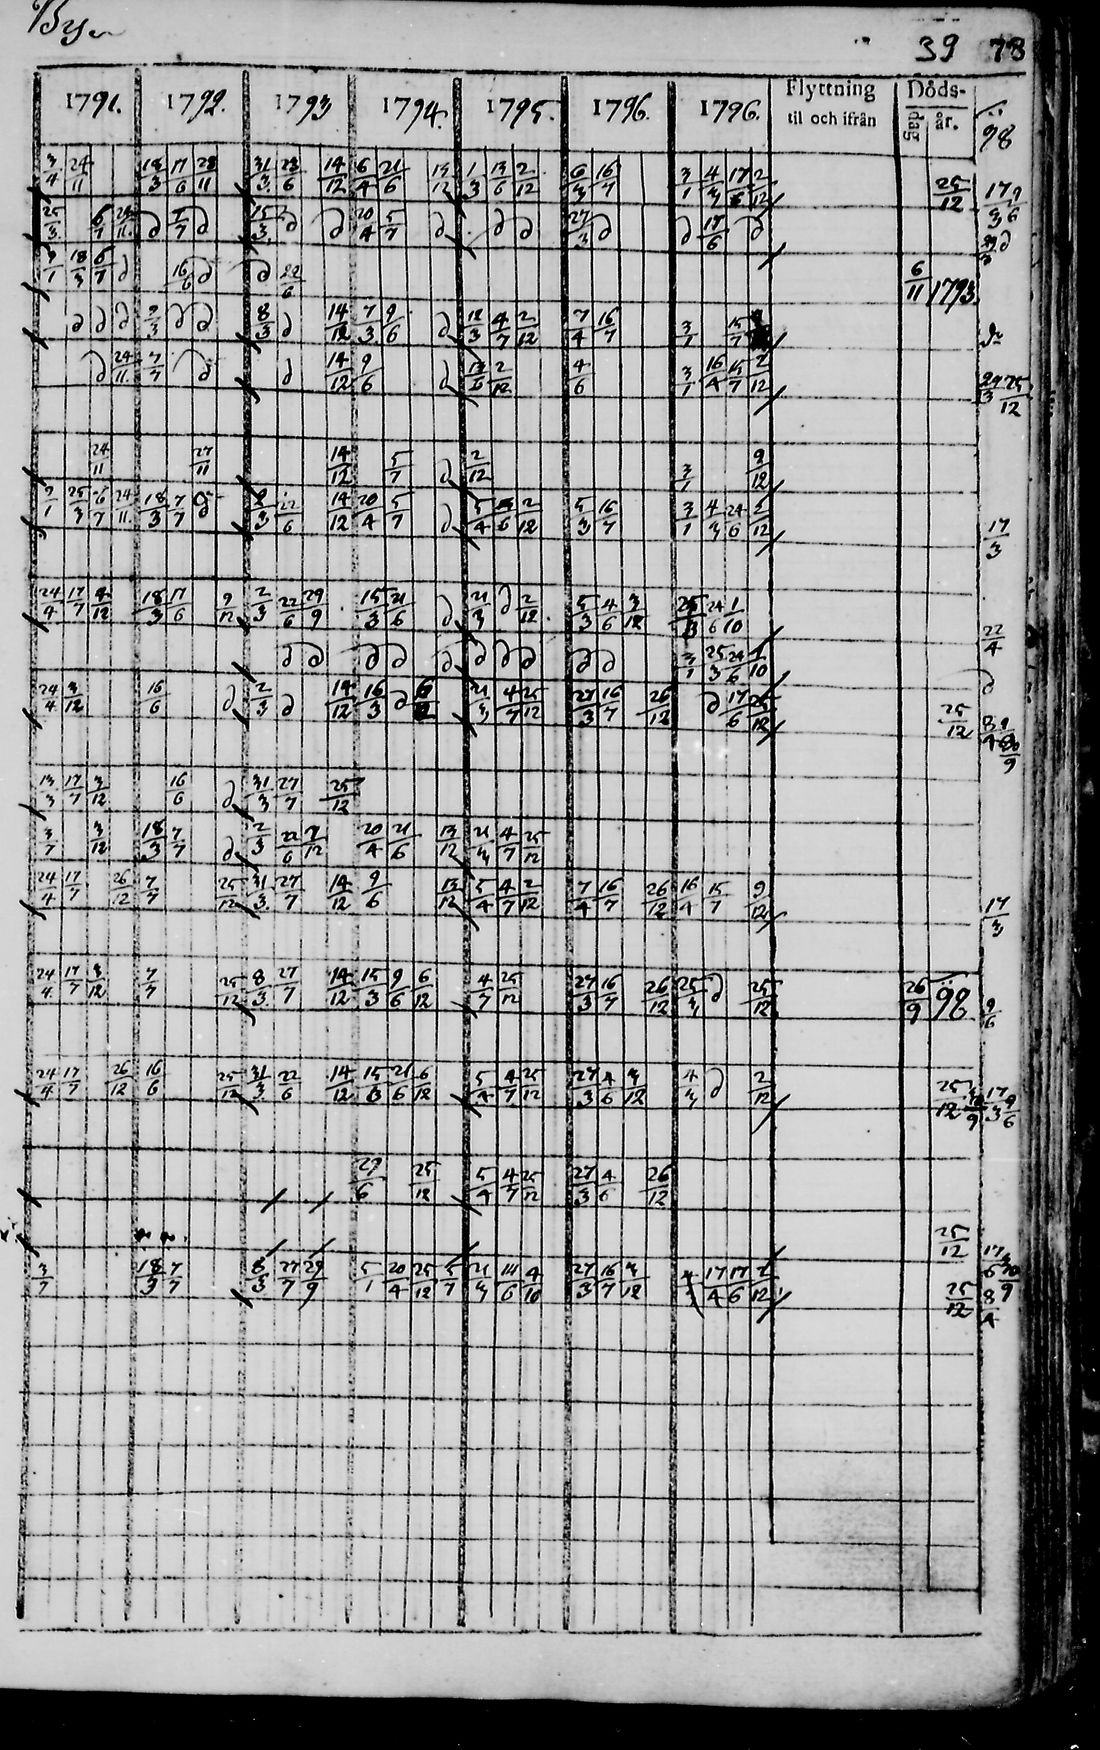 Byn
39 78
1791. 1792. 1793 1794. 1795. 1796. 1796. Flyttning til och ifrån Döds- dag år. 98
3/4 24/11 18/3 17/6 28/11 31/3 28/6 14/12 6/4 21/6 13/12 1/3 13/6 2/12 6/3 16/7 3/1 4/3 17/6 2/12 25/12 17/3 9/6
25/3 6/7 24/11 d 7/7 d 15/3 d d 20/4 5/7 d d d 27/3 d d 17/6 d d
9/1 18/3 6/7 d 16/6 d d 22/6 6/11 1793
d d d 2/3 d d 8/3 d 14/12 7/3 9/6 d 12/3 4/7 2/12 7/4 16/7 3/1 15/7
d 24/11 7/7 d d 14/12 9/6 d 13/6 2/12 4/6 3/1 16/4 15/7 2/12 25/12
24/11 27/11 14/12 5/7 d 2/12 3/1 9/12
7/1 25/3 6/7 24/11 18/3 7/7 d 22/6 14/12 20/4 5/7 d 5/4 2/12 5/3 16/7 3/1 4/3 24/6 17/3
24/4 17/7 4/12 18/3 17/6 9/12 2/3 22/6 29/9 15/3 21/6 d 21/3 d 2/12 5/3 4/6 3/12 24/6 1/10 22/4
d d d d d d d d d d 3/1 25/3 24/6 1/10 d
24/4 3/12 16/6 d 2/3 d 14/12 16/3 d 21/3 4/7 25/12 27/3 16/7 26/12 d 17/6 25/12
13/3 17/7 3/12 16/6 d 31/3 27/7 25/12
3/7 3/12 18/3 7/7 d 2/3 22/6 7/12 20/4 21/6 13/12 21/3 4/7 25/12
24/4 17/7 26/12 7/7 25/12 31/3 27/7 14/12 9/6 13/12 5/4 4/7 2/12 7/4 16/7 26/12 16/4 15/7 9/12 17/3
24/4 17/7 3/12 7/7 25/12 8/3 27/7 14/12 15/3 9/6 6/12 4/7 25/12 27/3 16/7 26/12 25/3 d 25/12 26/9 98 9/6
24/4 17/7 26/12 16/6 25/12 31/3 22/6 14/12 15/3 21/6 6/12 5/4 4/7 25/12 27/3 4/6 3/12 4/3 d 2/12 25/12 17/3 9/6
29/6 25/12 5/4 4/7 25/12 27/3 4/6 26/12
25/12
3/7 18/3 7/7 8/3 27/7 29/9 5/1 20/4 25/12 5/7 21/3 14/6 4/10 27/3 16/7 3/12 17/4 17/6 25/12 8/4